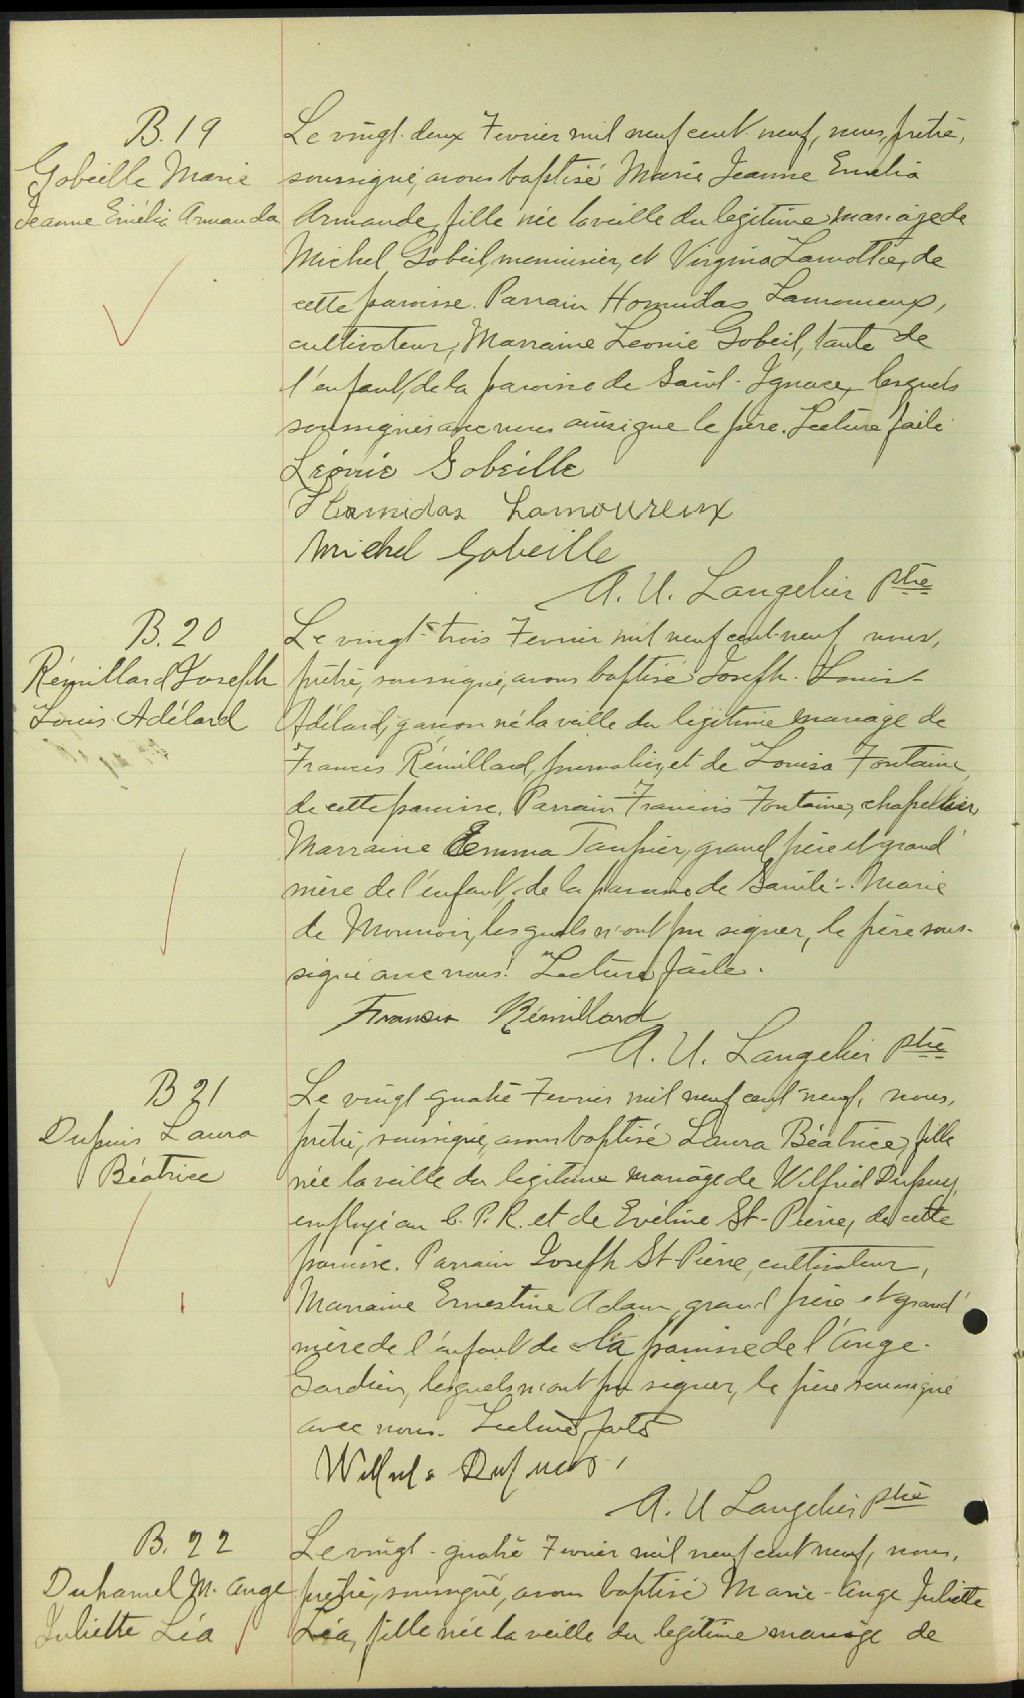 B. 19
Gobeille Marie
Jeanne Emélia Armanda
Le vingt-deux Fevrier mil neuf cent neuf, nous, prêtre,
soussigné, avons baptisé Marie Jeanne Emelia
Armande, fille née la veille du legitime mariage de
Michel Gobeil, menuisier, et Virginia Lamothe, de
cette paroisse. Parrain Homidas Lamoureux,
cultivateur, Marraine Leonie Gobeil, tante de
l'enfant, de la paroisse de Saint-Ignace, lesquels
soussignés avec nous ainsi que le père. Lecture faite
Léonie Gobeille
Homidas Lamoureux
Michel Gobeille
A. U. Langelier ptre
B. 20
Rémillard Joseph
Louis Adélard
Le vingt-trois Fevrier mil neuf cent-neuf nous,
prêtre, soussigné, avons baptisé Joseph-Louis-
Adélard, garçon né la veille du légitime mariage de
Francis Rémillard, journalier, et de Louisa Fontaine,
de cette paroisse. Parrain Francois Fontaine, chapelier,
Marraine Emma Taupier, grand père et grand'
mère de l'enfant, de la paroisse de Sainte-Marie
de Monnoir, lesquels n'ont pu signer, le père sous-
signé avec nous. Lecture faite.
Francis Rémillard
A. U. Langelier ptre
B 21
Dupuis Laura
Béatrice
Le vingt-quatre Fevrier mil neuf cent-neuf, nous,
prêtre, soussigné, avons baptisé Laura Béatrice, fille
née la veille du legitime mariage de Wilfrid Dupuy,
employé au C. P. R. et de Evéline St-Pierre, de cette
paroisse. Parrain Joseph St-Pierre, cultivateur,
Marraine Ernestine Adam, grand père et grand'
mère de l'enfant de la paroisse de l'Ange-
Gardien, lesquels n'ont pu signer, le père soussigné
avec nous. Lecture faite
Dupuis
A. U Langelier ptre
B. 22
Duhamel M. Ange
Juliette Léa
Le vingt-quatre Fevrier mil neuf cent neuf, nous,
prêtre, soussigné, avons baptisé Marie-Ange Juliette
Léa, fille née la veille du legitime mariage de